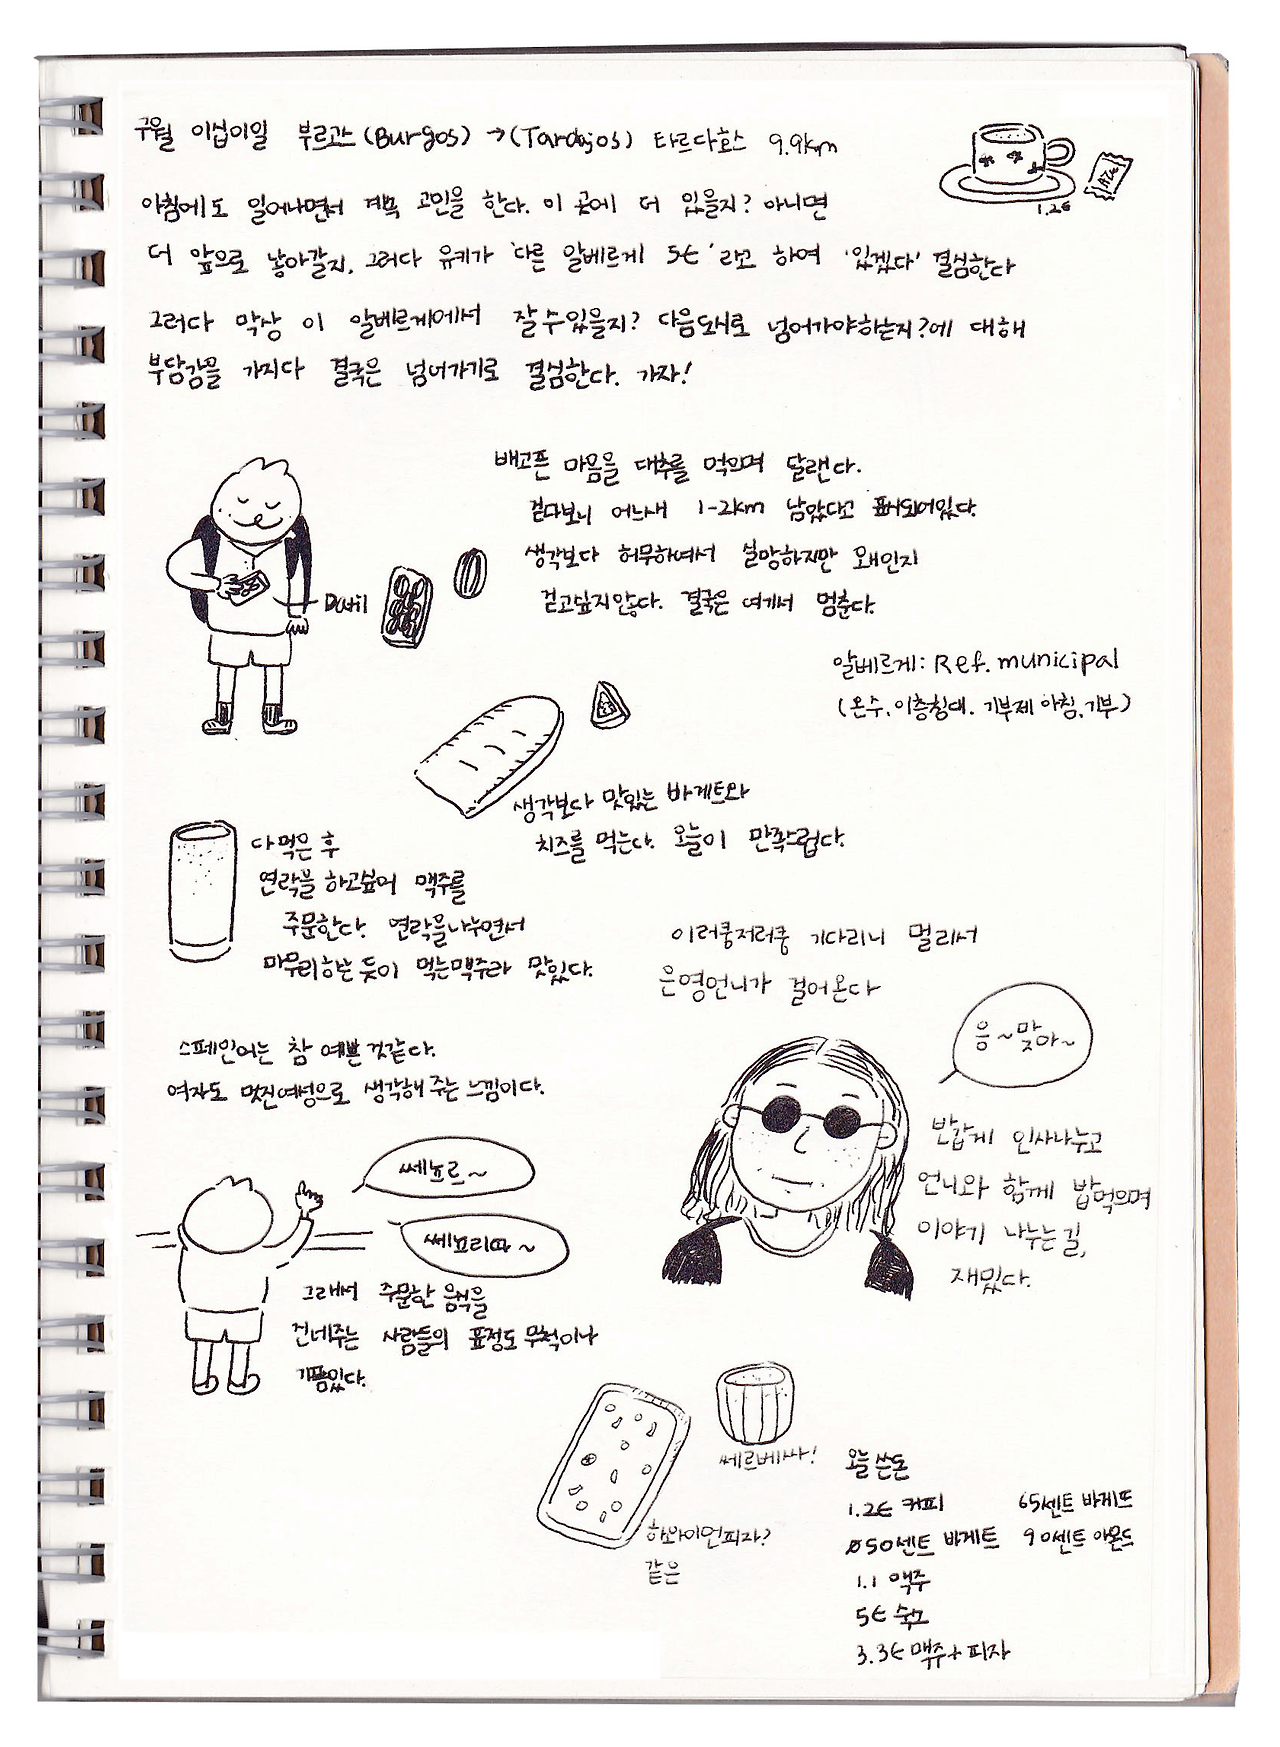 구월 이십이일 부르고스(Burgos) →(Tardajos) 타르다호스 9.9km
1.2€
아침에도 일어나면서 계속 고민을 한다. 이 곳에 더 있을지? 아니면
더 앞으로 나아갈지. 그러다 유키가 '다른 알베르게 5€' 라고 하여 '있겠다' 결심한다
그러다 막상 이 알베르게에서 잘 수 있을지? 다음도시로 넘어가야하는지?에 대해
부담감을 가지다 결국은 넘어가기로 결심한다. 가자!
배고픈 마음을 대추를 먹으며 달랜다.
걷다보니 어느새 1-2km 남았다고 표시되어있다.
생각보다 허무하여서 실망하지만 왜인지
걷고싶지않다. 결국은 여기서 멈춘다.
Datil
알베르게: Ref. municipal
(온수, 이층침대. 기부제 아침, 기부)
생각보다 맛있는 바게트와
치즈를 먹는다. 오늘이 만족스럽다.
다 먹은 후
연락을 하고싶어 맥주를
주문한다. 연락을나누면서
마무리하는 듯이 먹는맥주라 맛있다.
이러쿵저러쿵 기다리니 멀리서
은영언니가 걸어온다
응~맞아~
반갑게 인사나누고
언니와 함께 밥먹으며
이야기 나누는 길,
재밌다.
스페인어는 참 예쁜 것같다.
여자도 멋진여성으로 생각해 주는 느낌이다.
쎄뇨르~
쎄뇨리따~
그래서 주문한 음식을
건네주는 사람들의 표정도 무척이나
기품있다.
쎄르베싸!
하와이언피자?
같은
오늘 쓴돈
1.2€ 커피 65센트 바게뜨
50센트 바게트 90센트 아몬드
1.1 맥주
5€ 숙소
3.3€ 맥주+피자